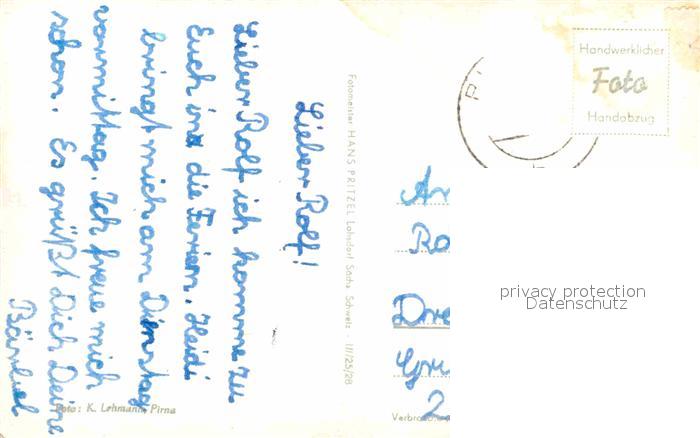 Lieber Rolf!
Lieber Rolf ich komme zu
Euch in die Ferien. Heidi
bringt mich am Dienstag
vormittag. Ich freue mich
schon. Es grüßt Dich Deine
Bärbel
Foto: K. Lehmann, Pirna
Fotomeister HANS PRITZEL Lohsdorf Sächs. Schweiz · III/25/28
Handwerklicher
Foto
Handabzug
An
Ro
Dre
2
privacy protection
Datenschutz